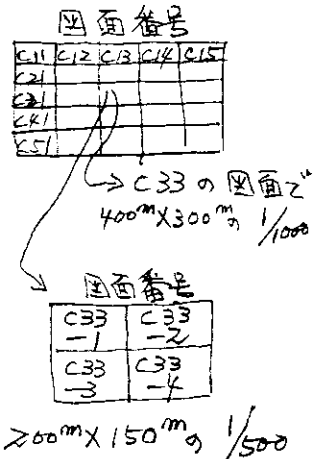 図面番号
C11 C12 C13 C14 C15
C21
C31
C41
C51
C33の図面で
400m×300mの 1/1000
図面番号
C33 -1 C33 -2
C33 -3 C33 -4
200m×150mの 1/500